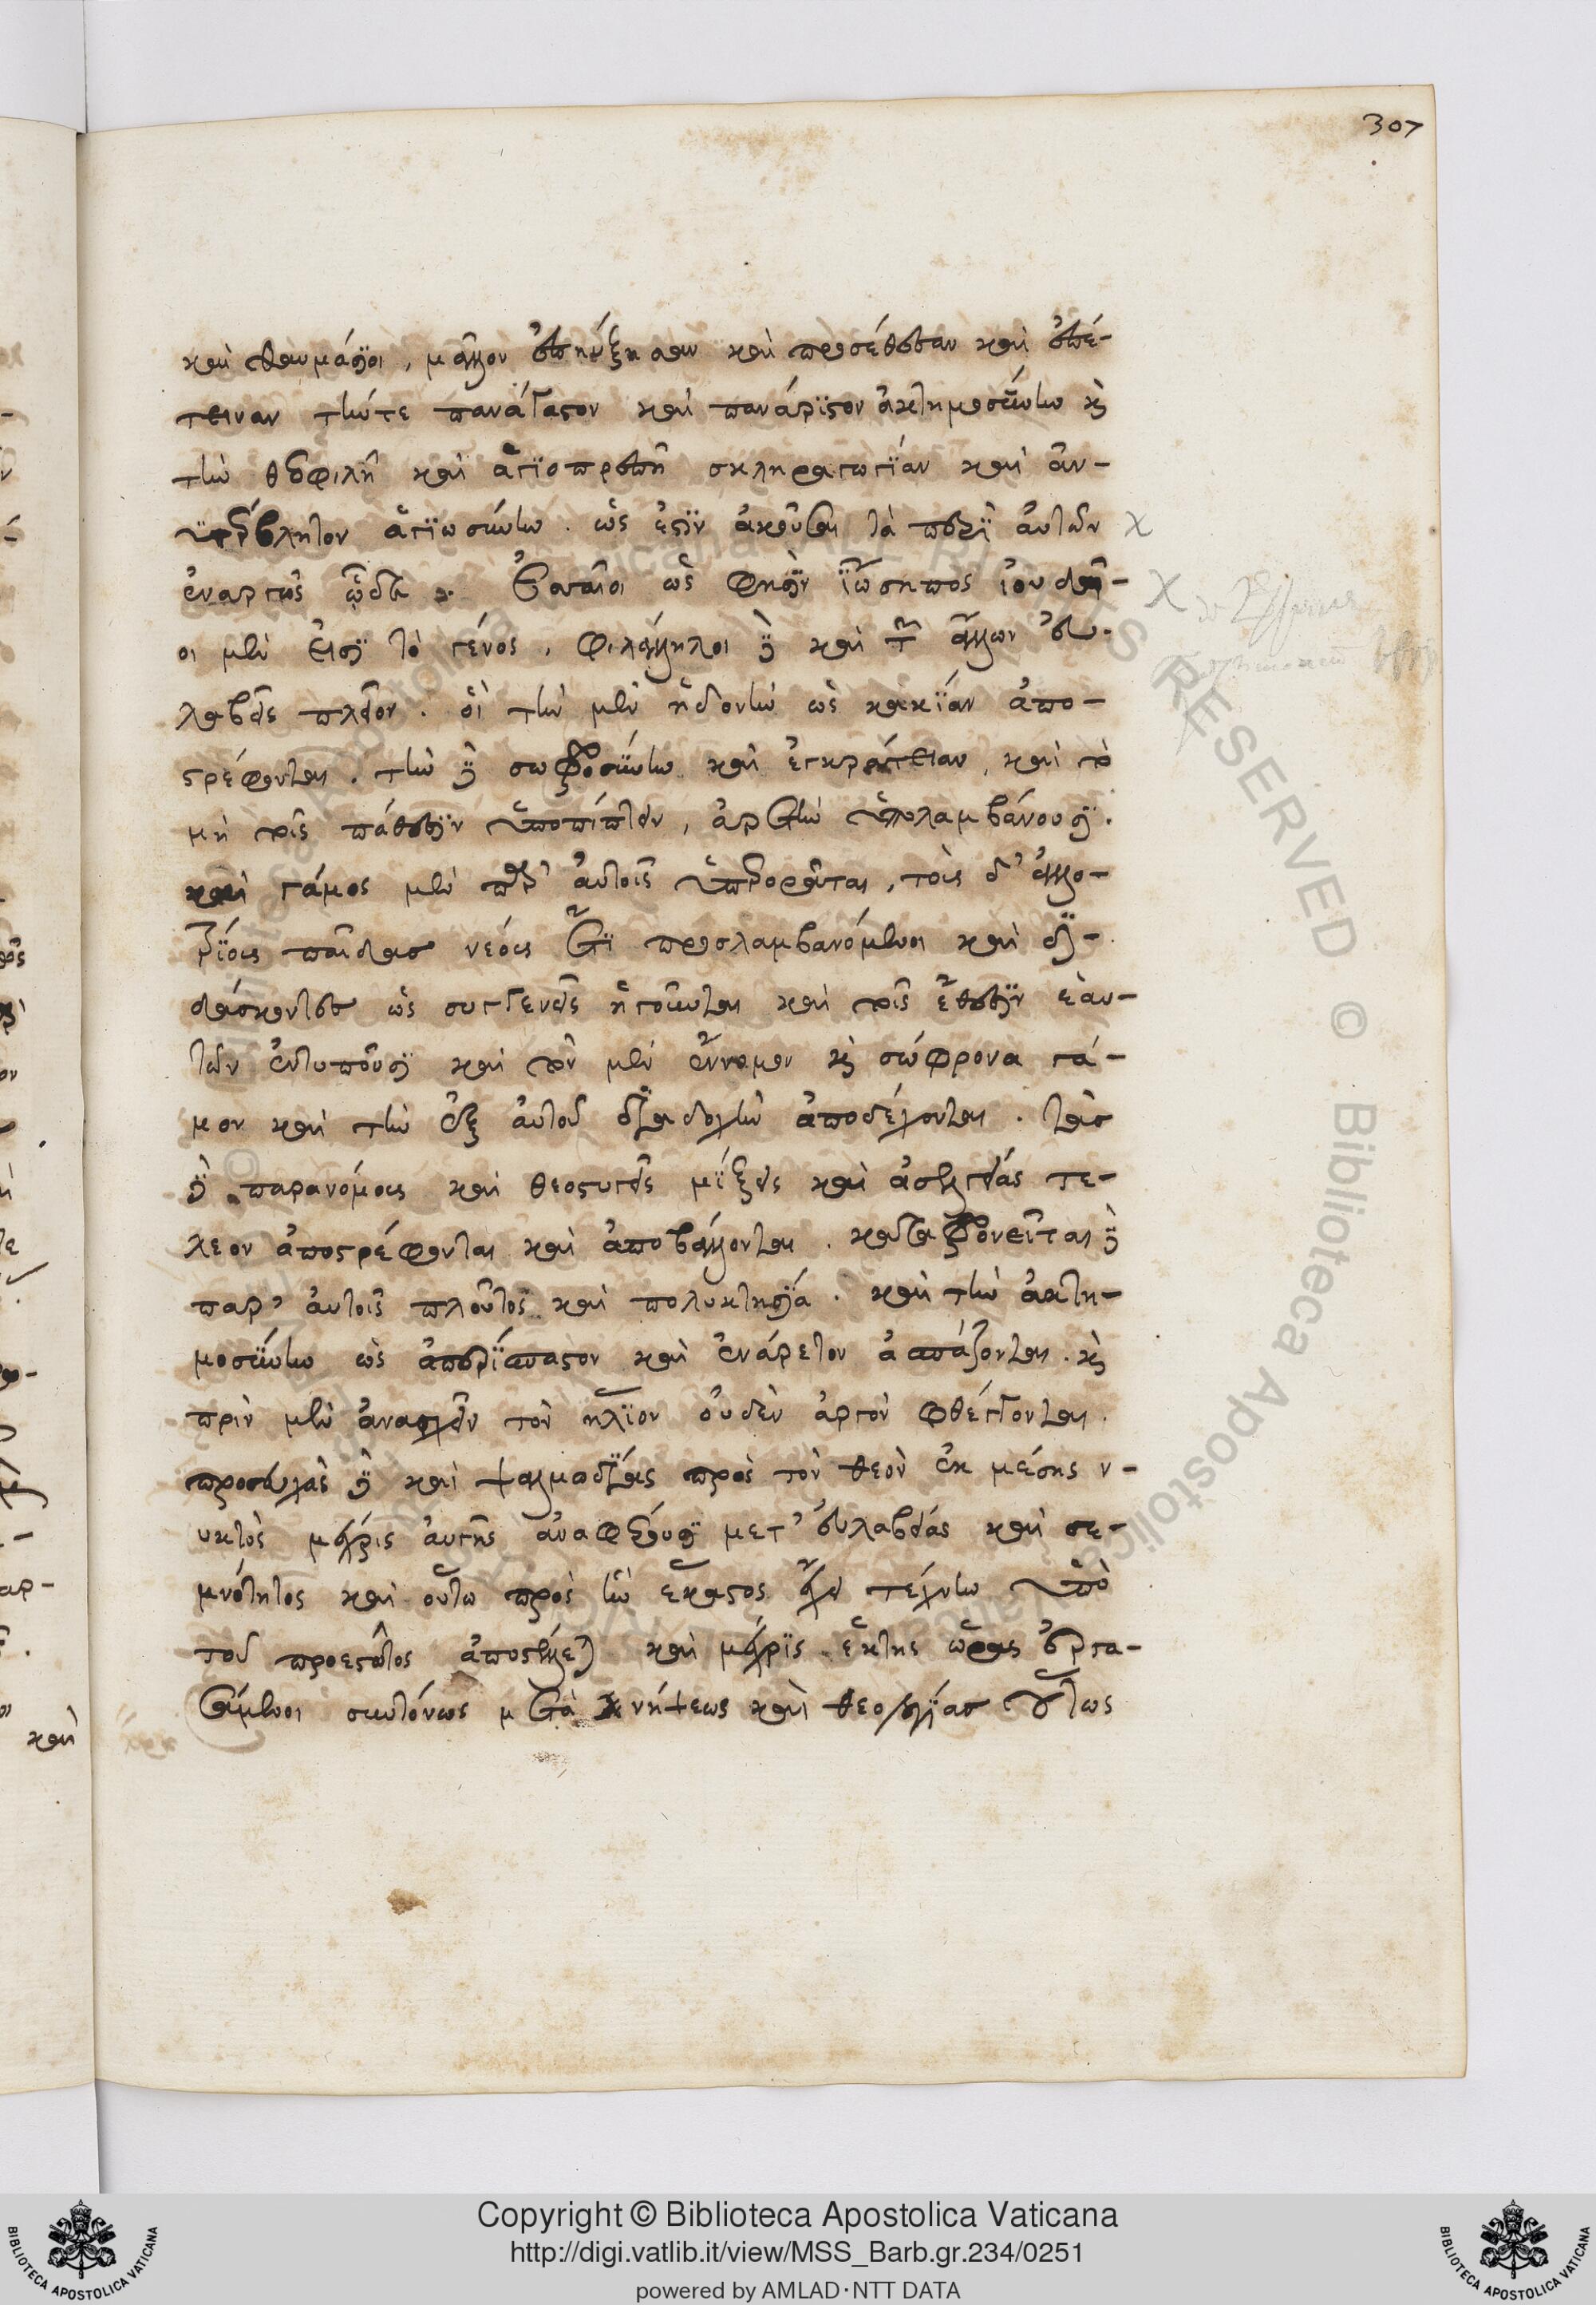 307
καὶ θαυμάσιοι, μᾶλλον ἐπηύξησαν καὶ προσέθεσαν καὶ ἐπέ-
τειναν τήν τε πανάγαστον καὶ πανάριστον ἀκτημοσύνην καὶ
τὴν θεοφιλῆ καὶ ἁγιοπρεπῆ σκληραγωγίαν καὶ ἀν-
υπέρβλητον ἁγιωσύνην. ὡς ἐστὶν ἀκοῦσαι τὰ περὶ αὐτῶν
ἐναργῶς ὧδε. Ἐσσαῖοι ὥς φησὶν Ἰώσηπος ἰουδαῖ-
οι μὲν εἰσὶ τὸ γένος, φιλάλληλοι δὲ καὶ τῶν ἄλλων εὐ-
λαβεῖς πλεῖον. οἳ τὴν μὲν ἡδονὴν ὡς κακίαν ἀπο-
στρέφονται. τὴν δὲ σωφροσύνην καὶ ἐγκράτειαν, καὶ τὸ
μὴ τοῖς πάθεσιν ὑποπίπτειν, ἀρετὴν ὑπολαμβάνουσι.
καὶ γάμος μὲν παρ' αὐτοῖς ὑπερορᾶται, τοὺς δ' ἀλλο-
τρίους παῖδας νέους ἔτι προσλαμβανόμενοι καὶ δι-
δάσκοντες ὡς συγγενεῖς ἡγοῦνται καὶ τοῖς ἔθεσιν ἑαυ-
τῶν ἐντυποῦσι καὶ τὸν μὲν ἔννομον καὶ σώφρονα γά-
μον καὶ τὴν ἐξ αὐτοῦ διαδοχὴν ἀποδέχονται. τὰς
δὲ παρανόμους καὶ θεοστυγεῖς μίξεις καὶ ἀσελγείας τέ-
λεον ἀποστρέφονται καὶ ἀποβάλλονται. καταφρονεῖται δὲ
παρ' αὐτοῖς πλοῦτος καὶ πολυκτησία. καὶ τὴν ἀκτη-
μοσύνην ὡς ἀπερίσπαστον καὶ ἐνάρετον ἀσπάζονται. καὶ
πρὶν μὲν ἀνασχεῖν τὸν ἥλιον οὐδὲν ἀργὸν φθέγγονται.
προσευχὰς δὲ καὶ ψαλμωδίας πρὸς τὸν θεὸν ἐκ μέσης ν-
υκτὸς μέχρις αὐγῆς ἀναφέρουσι μετ' εὐλαβείας καὶ σε-
μνότητος καὶ οὕτω πρὸς ἣν ἕκαστος ἔχει τέχνην ὑπὸ
τοῦ προεστῶτος ἀποστέλλεται καὶ μέχρις ἕκτης ὥρας ἐργα-
σάμενοι συντόνως μετὰ νήψεως καὶ θεολογίας οὕτως
Copyright © Biblioteca Apostolica Vaticana
http://digi.vatlib.it/view/MSS_Barb.gr.234/0251
powered by AMLAD·NTT DATA